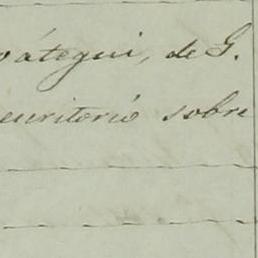 oátegui, de G.
escritorio sobre